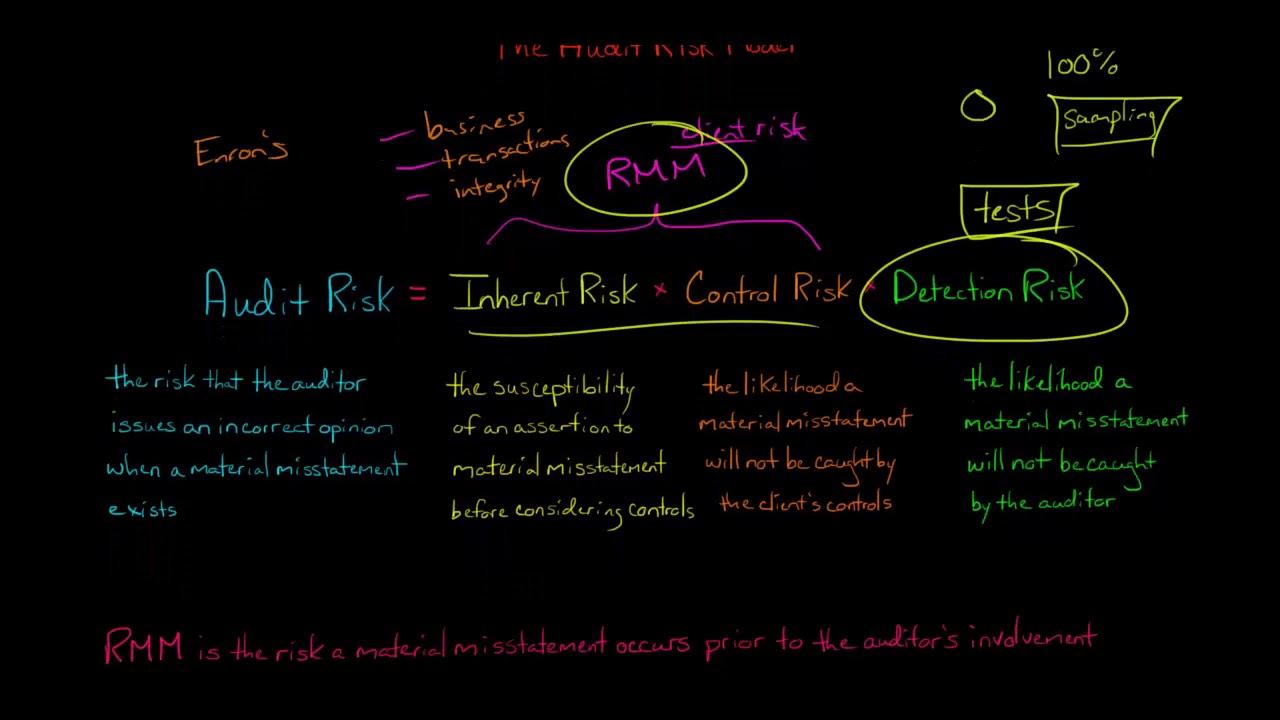 The Audit Risk Model
100%
sampling
Enron's
— business
— transactions
— integrity
client risk
RMM
tests
Audit Risk = Inherent Risk × Control Risk × Detection Risk
the risk that the auditor
issues an incorrect opinion
when a material misstatement
exists
the susceptibility
of an assertion to
material misstatement
before considering controls
the likelihood a
material misstatement
will not be caught by
the client's controls
the likelihood a
material misstatement
will not be caught
by the auditor
RMM is the risk a material misstatement occurs prior to the auditor's involvement